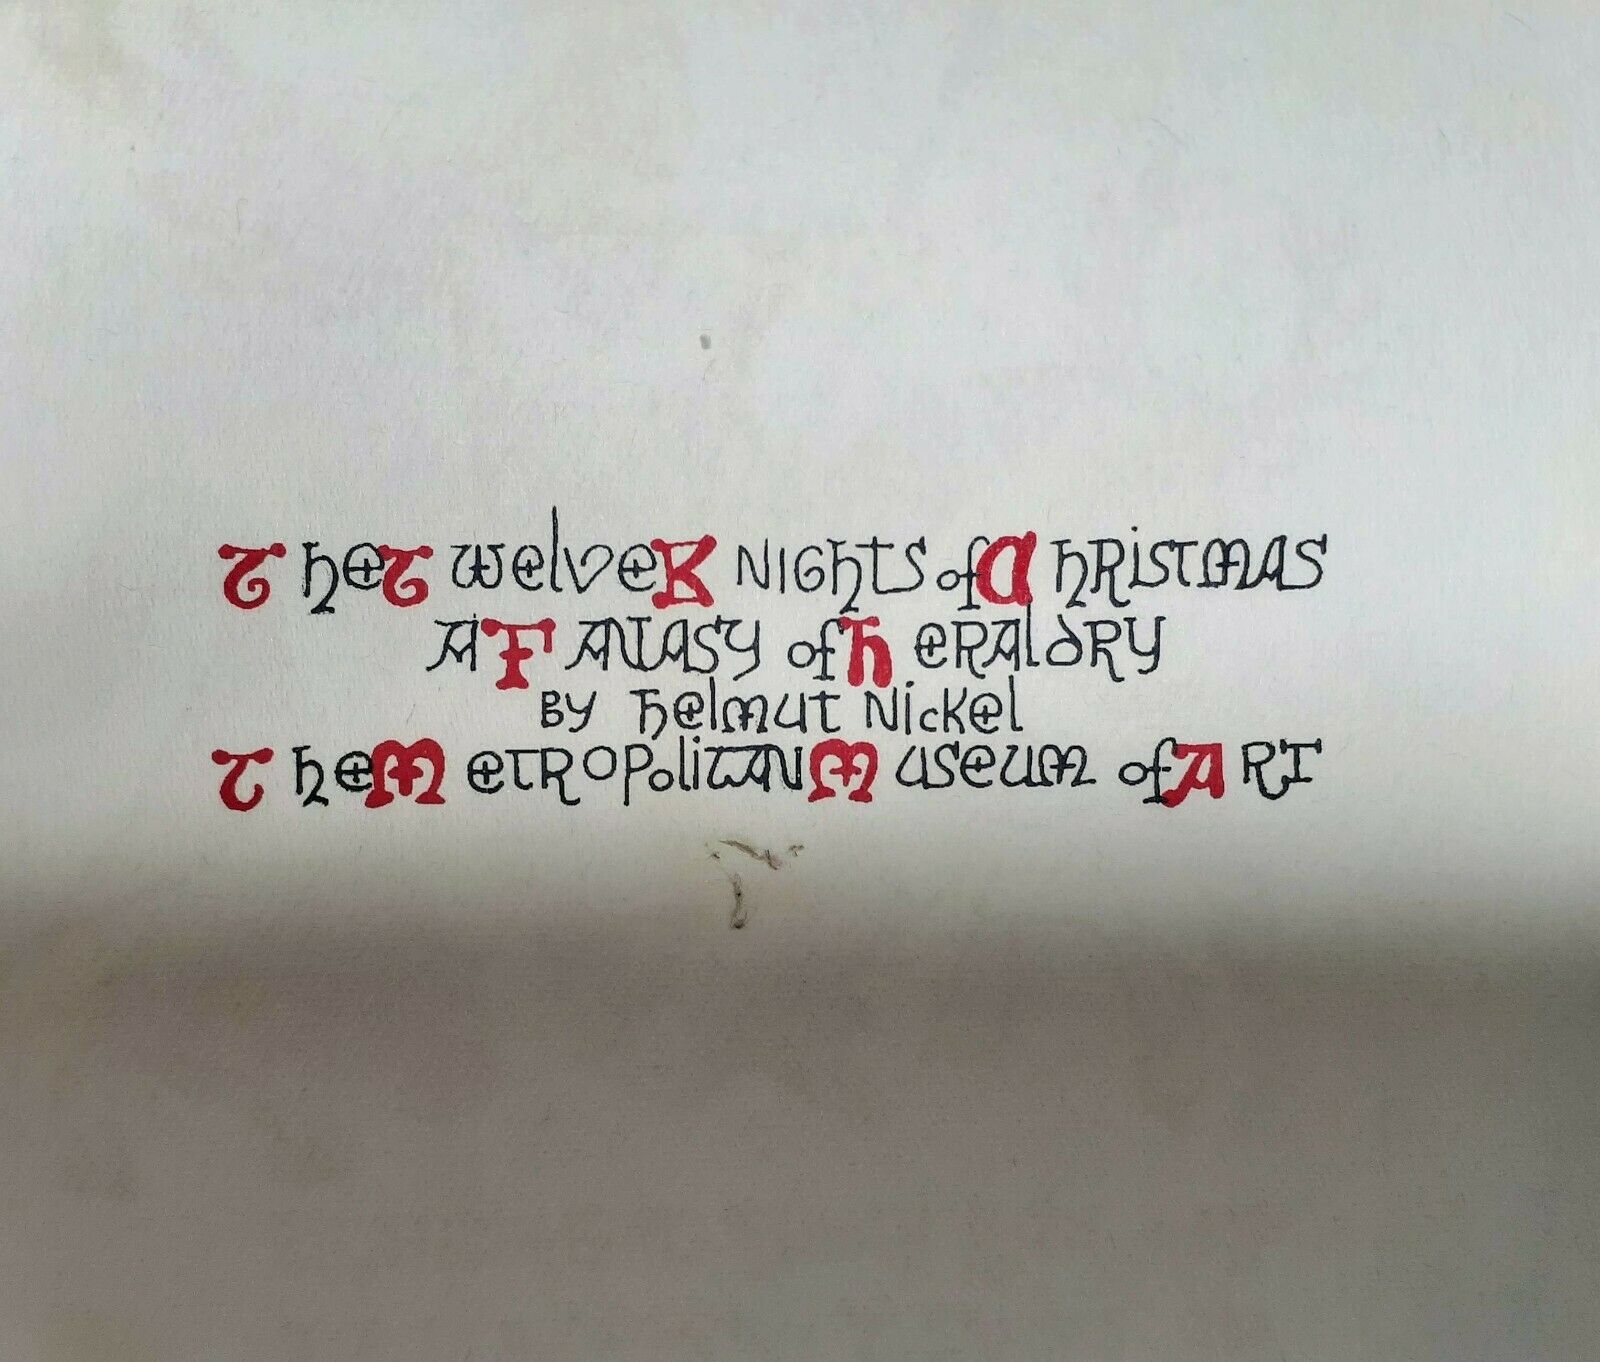 The Twelve Knights of Christmas
A Fantasy of Heraldry
by Helmut Nickel
The Metropolitan Museum of Art